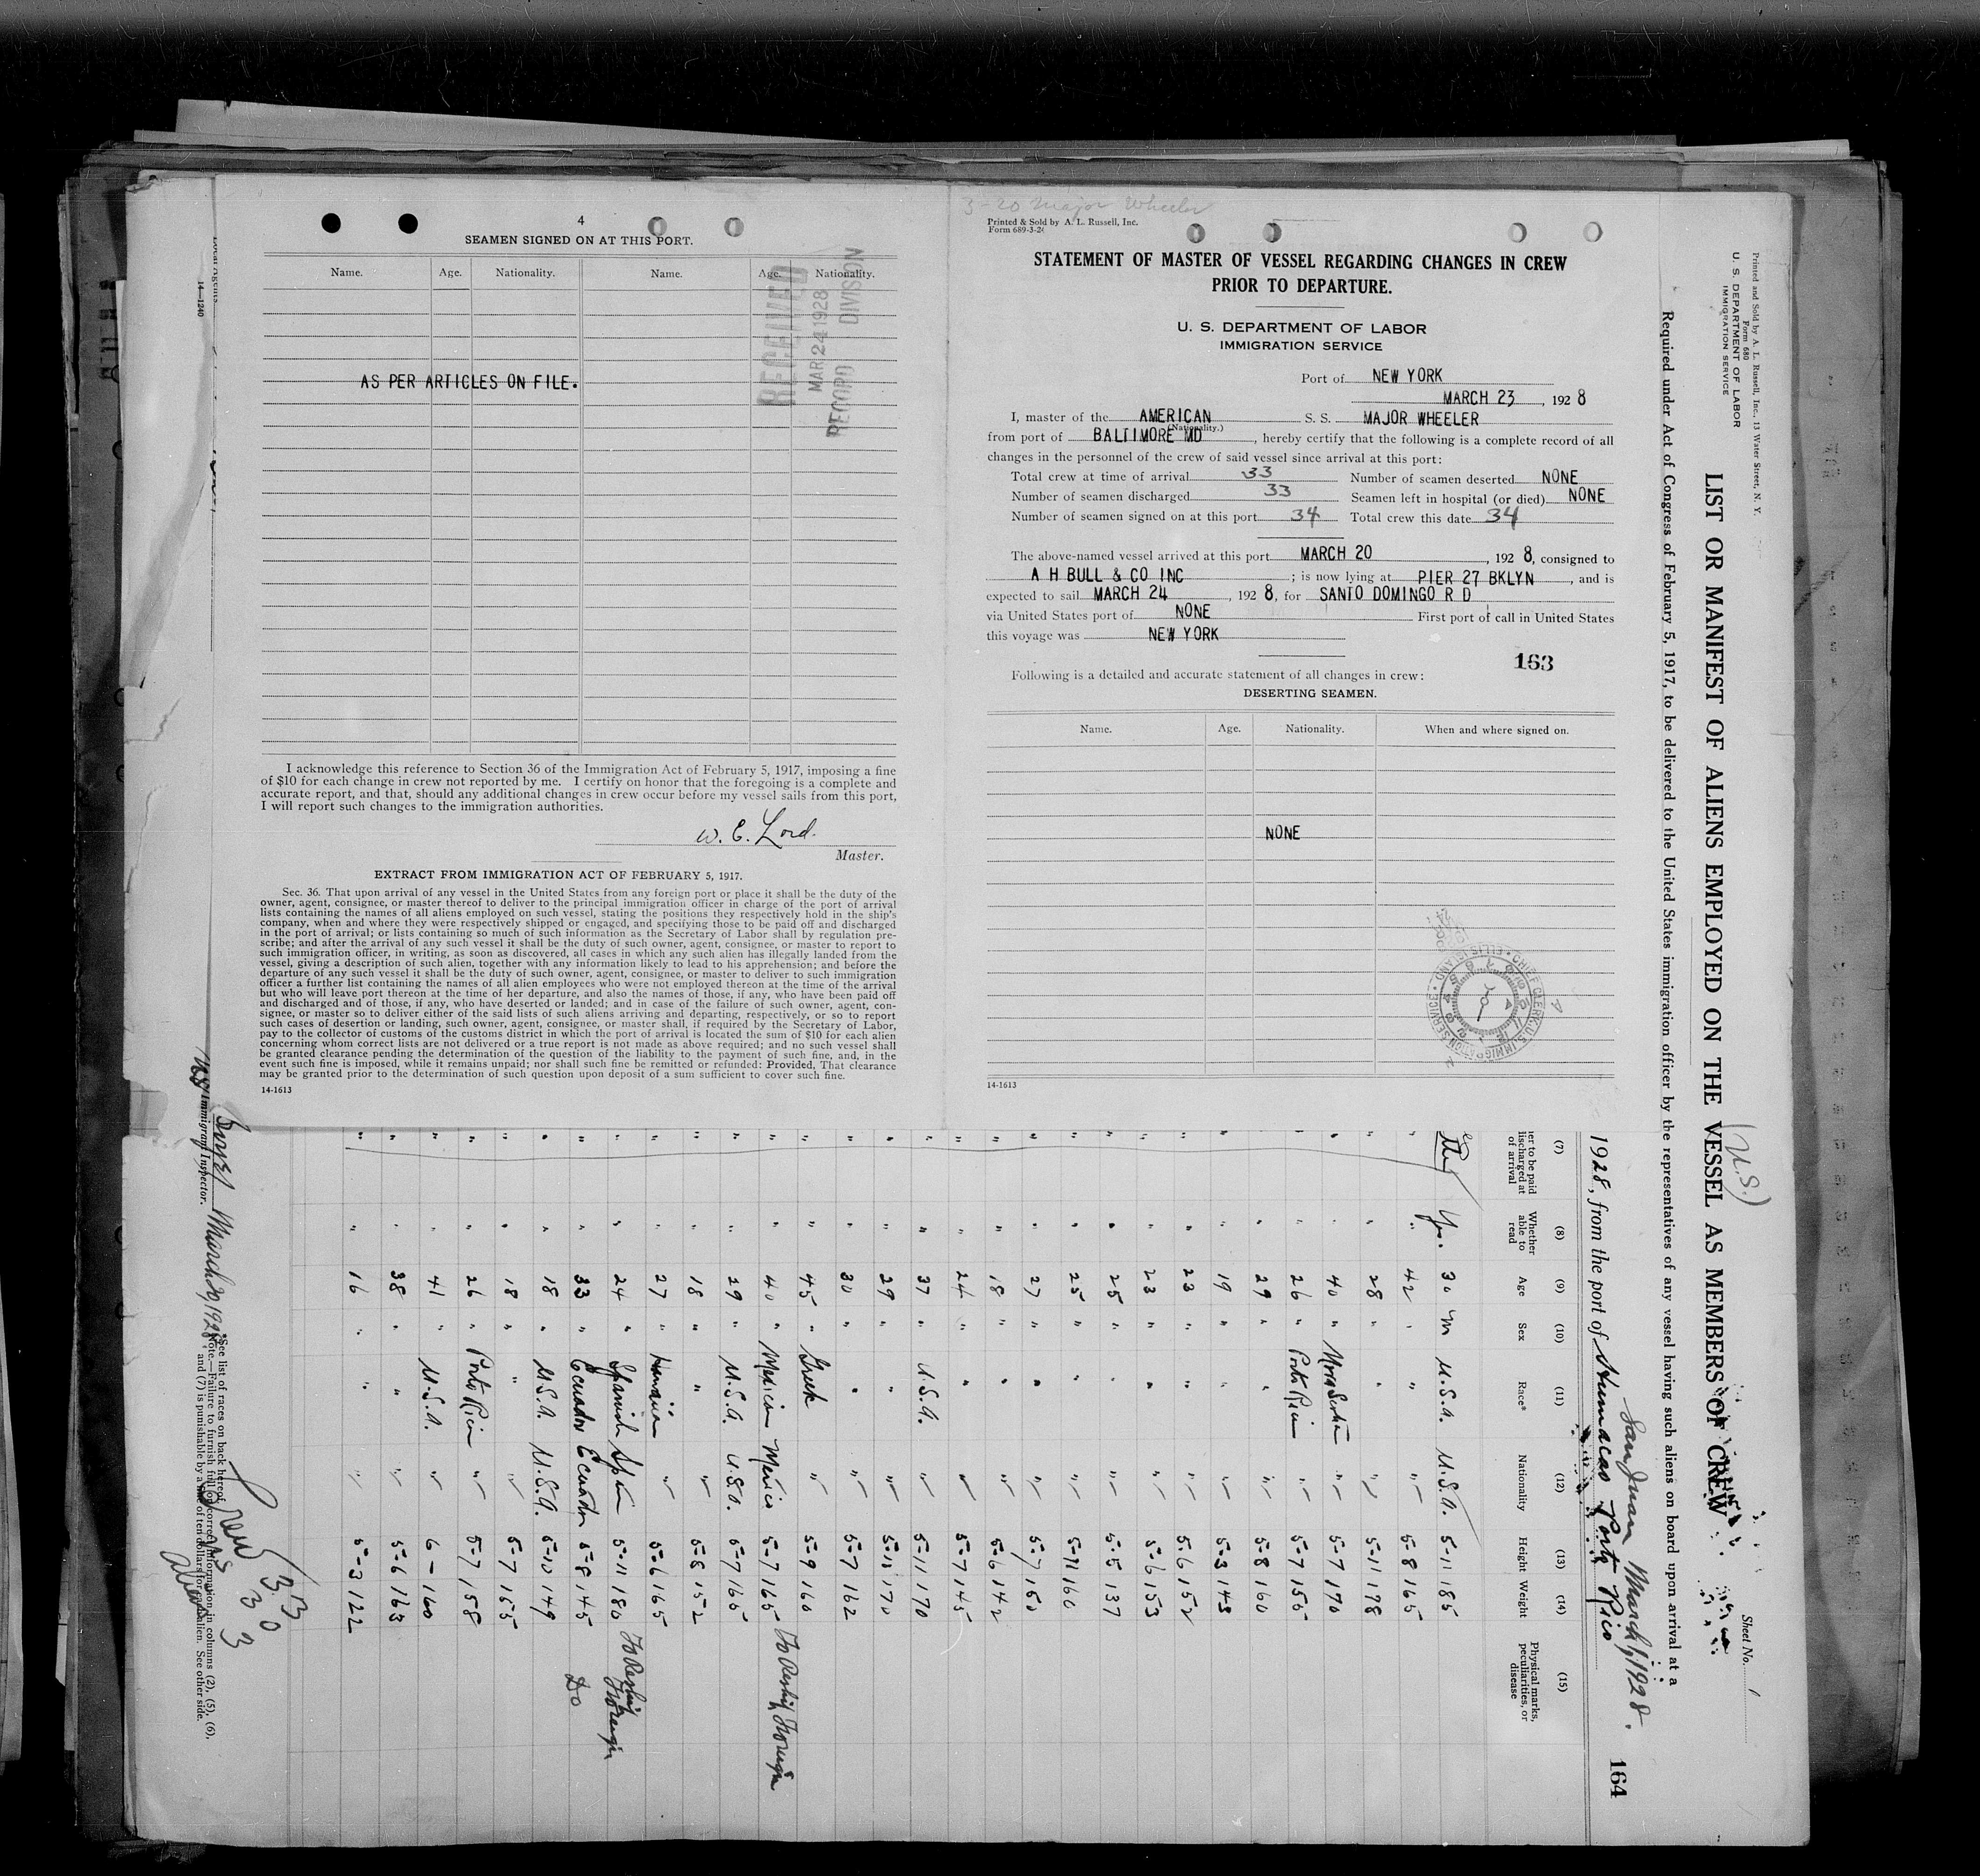 4
SEAMEN SIGNED ON AT THIS PORT.
Name. Age. Nationality. Name. Age. Nationality.
RECEIVED
MAR 24 1928
RECORD DIVISION
AS PER ARTICLES ON FILE.
I acknowledge this reference to Section 36 of the Immigration Act of February 5, 1917, imposing a fine
of $10 for each change in crew not reported by me. I certify on honor that the foregoing is a complete and
accurate report, and that, should any additional changes in crew occur before my vessel sails from this port,
I will report such changes to the immigration authorities.
W. E. Lord.
Master.
EXTRACT FROM IMMIGRATION ACT OF FEBRUARY 5, 1917.
Sec. 36. That upon arrival of any vessel in the United States from any foreign port or place it shall be the duty of the
owner, agent, consignee, or master thereof to deliver to the principal immigration officer in charge of the port of arrival
lists containing the names of all aliens employed on such vessel, stating the positions they respectively hold in the ship's
company, when and where they were respectively shipped or engaged, and specifying those to be paid off and discharged
in the port of arrival; or lists containing so much of such information as the Secretary of Labor shall by regulation pre-
scribe; and after the arrival of any such vessel it shall be the duty of such owner, agent, consignee, or master to report to
such immigration officer, in writing, as soon as discovered, all cases in which any such alien has illegally landed from the
vessel, giving a description of such alien, together with any information likely to lead to his apprehension; and before the
departure of any such vessel it shall be the duty of such owner, agent, consignee, or master to deliver to such immigration
officer a further list containing the names of all alien employees who were not employed thereon at the time of the arrival
but who will leave port thereon at the time of her departure, and also the names of those, if any, who have been paid off
and discharged and of those, if any, who have deserted or landed; and in case of the failure of such owner, agent, con-
signee, or master so to deliver either of the said lists of such aliens arriving and departing, respectively, or so to report
such cases of desertion or landing, such owner, agent, consignee, or master shall, if required by the Secretary of Labor,
pay to the collector of customs of the customs district in which the port of arrival is located the sum of $10 for each alien
concerning whom correct lists are not delivered or a true report is not made as above required; and no such vessel shall
be granted clearance pending the determination of the question of the liability to the payment of such fine, and, in the
event such fine is imposed, while it remains unpaid; nor shall such fine be remitted or refunded: Provided, That clearance
may be granted prior to the determination of such question upon deposit of a sum sufficient to cover such fine.
14-1613
3-20 Major Wheeler
Printed & Sold by A. L. Russell, Inc.
Form 689-3-26
STATEMENT OF MASTER OF VESSEL REGARDING CHANGES IN CREW
PRIOR TO DEPARTURE.
U. S. DEPARTMENT OF LABOR
IMMIGRATION SERVICE
Port of NEW YORK
MARCH 23, 1928
I, master of the AMERICAN S. S. MAJOR WHEELER
(Nationality.)
from port of BALTIMORE MD, hereby certify that the following is a complete record of all
changes in the personnel of the crew of said vessel since arrival at this port:
Total crew at time of arrival 33 Number of seamen deserted NONE
Number of seamen discharged 33 Seamen left in hospital (or died) NONE
Number of seamen signed on at this port 34 Total crew this date 34
The above-named vessel arrived at this port MARCH 20, 1928, consigned to
A H BULL & CO INC; is now lying at PIER 27 BKLYN, and is
expected to sail MARCH 24, 1928, for SANTO DOMINGO R D
via United States port of NONE First port of call in United States
this voyage was NEW YORK
163
Following is a detailed and accurate statement of all changes in crew:
DESERTING SEAMEN.
Name. Age. Nationality. When and where signed on.
NONE
CHIEF CLERK U.S. IMMIGRATION SERVICE ELLIS ISLAND
14-1613
Printed and Sold by A. L. Russell, Inc., 13 Water Street, N. Y.
Form 680
U. S. DEPARTMENT OF LABOR
IMMIGRATION SERVICE
Sheet No. 1
(U.S.)
LIST OR MANIFEST OF ALIENS EMPLOYED ON THE VESSEL AS MEMBERS OF CREW
Required under Act of Congress of February 5, 1917, to be delivered to the United States immigration officer by the representatives of any vessel having such aliens on board upon arrival at a
San Juan March 1, 1928.
1928, from the port of Humacao Porto Rico
164
(7) (8) (9) (10) (11) (12) (13) (14) (15)
discharged at of arrival Whether able to read Age Sex Race* Nationality Height Weight Physical marks, peculiarities, or disease
Yes. 30 m U.S.A. U.S.A. 5-11 185
" 42 " " " 5-8 165
" 28 " " " 5-11 178
" 40 " Nova Scotia " 5-7 170
" 26 " Porto Rico " 5-7 155
" 29 " " " 5-8 160
" 19 " " " 5-3 143
" 23 " " " 5-6 152
" 23 " " " 5-6 153
" 25 " " " 5-5 137
" 25 " " " 5-11 160
" 27 " " " 5-7 150
" 18 " " " 5-6 142
" 24 " " " 5-7 145
" 37 " U.S.A. " 5-11 170
" 29 " " " 5-11 170
" 30 " " " 5-7 162
" 45 " Greek " 5-9 160
" 40 " Mexican Mexico 5-7 165 To Reship Foreign
" 29 " U.S.A. U.S.A. 5-7 165
" 18 " " " 5-8 152
" 27 " Hawaiian " 5-6 165
" 24 " Spanish Spain 5-11 180 To Reship Foreign
" 33 " Ecuador Ecuador 5-8 145 Do
" 18 " U.S.A. U.S.A. 5-10 149
" 18 " " " 5-7 155
" 26 " Porto Rico " 5-7 158
" 41 " U.S.A. " 6- 160
" 38 " " " 5-6 163
" 16 " " " 5-3 122
Crew 33
U.S. 30
Aliens 3
March 20, 1928
Immigrant Inspector.
*See list of races on back hereof.
Note.—Failure to furnish full or correct information in columns (2), (5), (6),
and (7) is punishable by a fine of ten dollars for each alien. See other side.
Local Agents.
14-1240